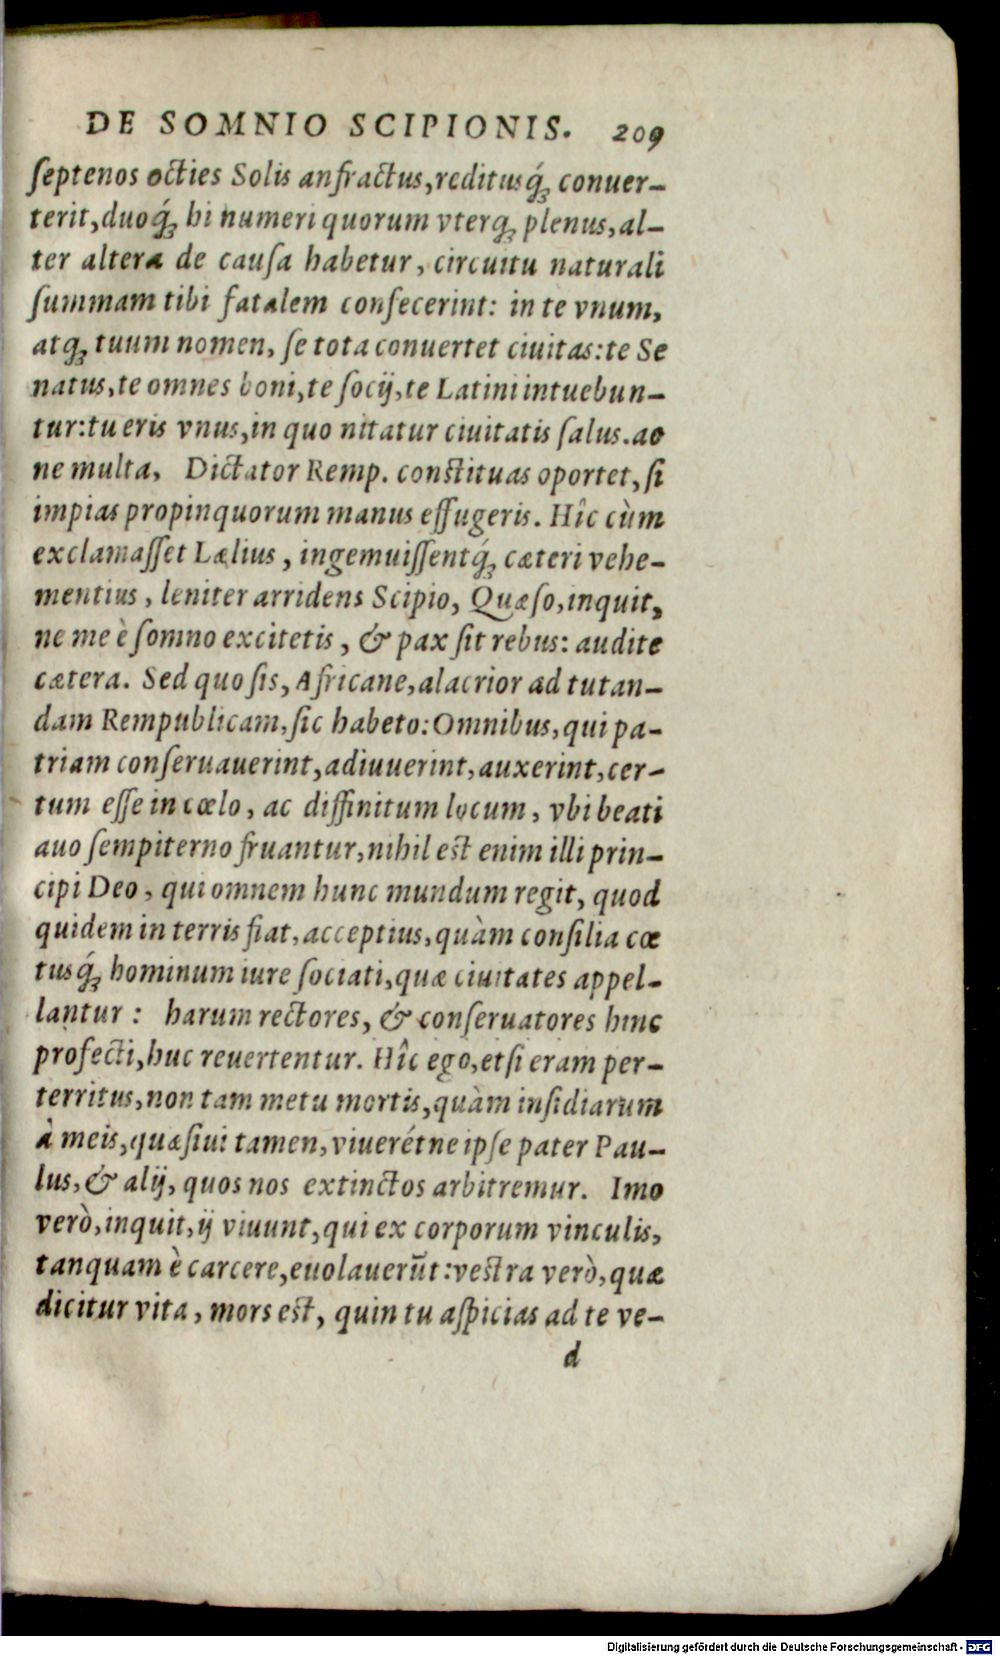 DE SOMNIO SCIPIONIS. 209
ſeptenos octies Solis anfractus,reditusq́; conuer-
terit,duoq́; hi numeri quorum vterq; plenus,al-
ter altera de cauſa habetur, circuitu naturali
ſummam tibi fatalem confecerint: in te vnum,
atq; tuum nomen, ſe tota conuertet ciuitas:te Se
natus,te omnes boni,te ſocij,te Latini intuebun-
tur:tu eris vnus,in quo nitatur ciuitatis ſalus.ac
ne multa, Dictator Remp. conſtituas oportet,ſi
impias propinquorum manus effugeris. Hîc cùm
exclamaſſet Lælius, ingemuiſſentq́; cæteri vehe-
mentius, leniter arridens Scipio, Quæſo,inquit,
ne me è ſomno excitetis, & pax ſit rebus: audite
cætera. Sed quo ſis, Africane,alacrior ad tutan-
dam Rempublicam,ſic habeto:Omnibus,qui pa-
triam conſeruauerint,adiuuerint,auxerint,cer-
tum eſſe in cœlo, ac diffinitum locum, vbi beati
auo ſempiterno fruantur,nihil eſt enim illi prin-
cipi Deo, qui omnem hunc mundum regit, quod
quidem in terris fiat,acceptius,quàm conſilia cœ
tusq́; hominum iure ſociati,quæ ciuitates appel-
lantur: harum rectores, & conſeruatores hinc
profecti,huc reuertentur. Hîc ego,etſi eram per-
territus,non tam metu mortis,quàm inſidiarum
à meis,quæſiui tamen,viuerétne ipſe pater Pau-
lus,& alij, quos nos extinctos arbitremur. Imo
verò,inquit,ij viuunt,qui ex corporum vinculis,
tanquam è carcere,euolauerūt:veſtra verò,quæ
dicitur vita, mors eſt, quin tu aſpicias ad te ve-
d
Digitalisierung gefördert durch die Deutsche Forschungsgemeinschaft - DFG